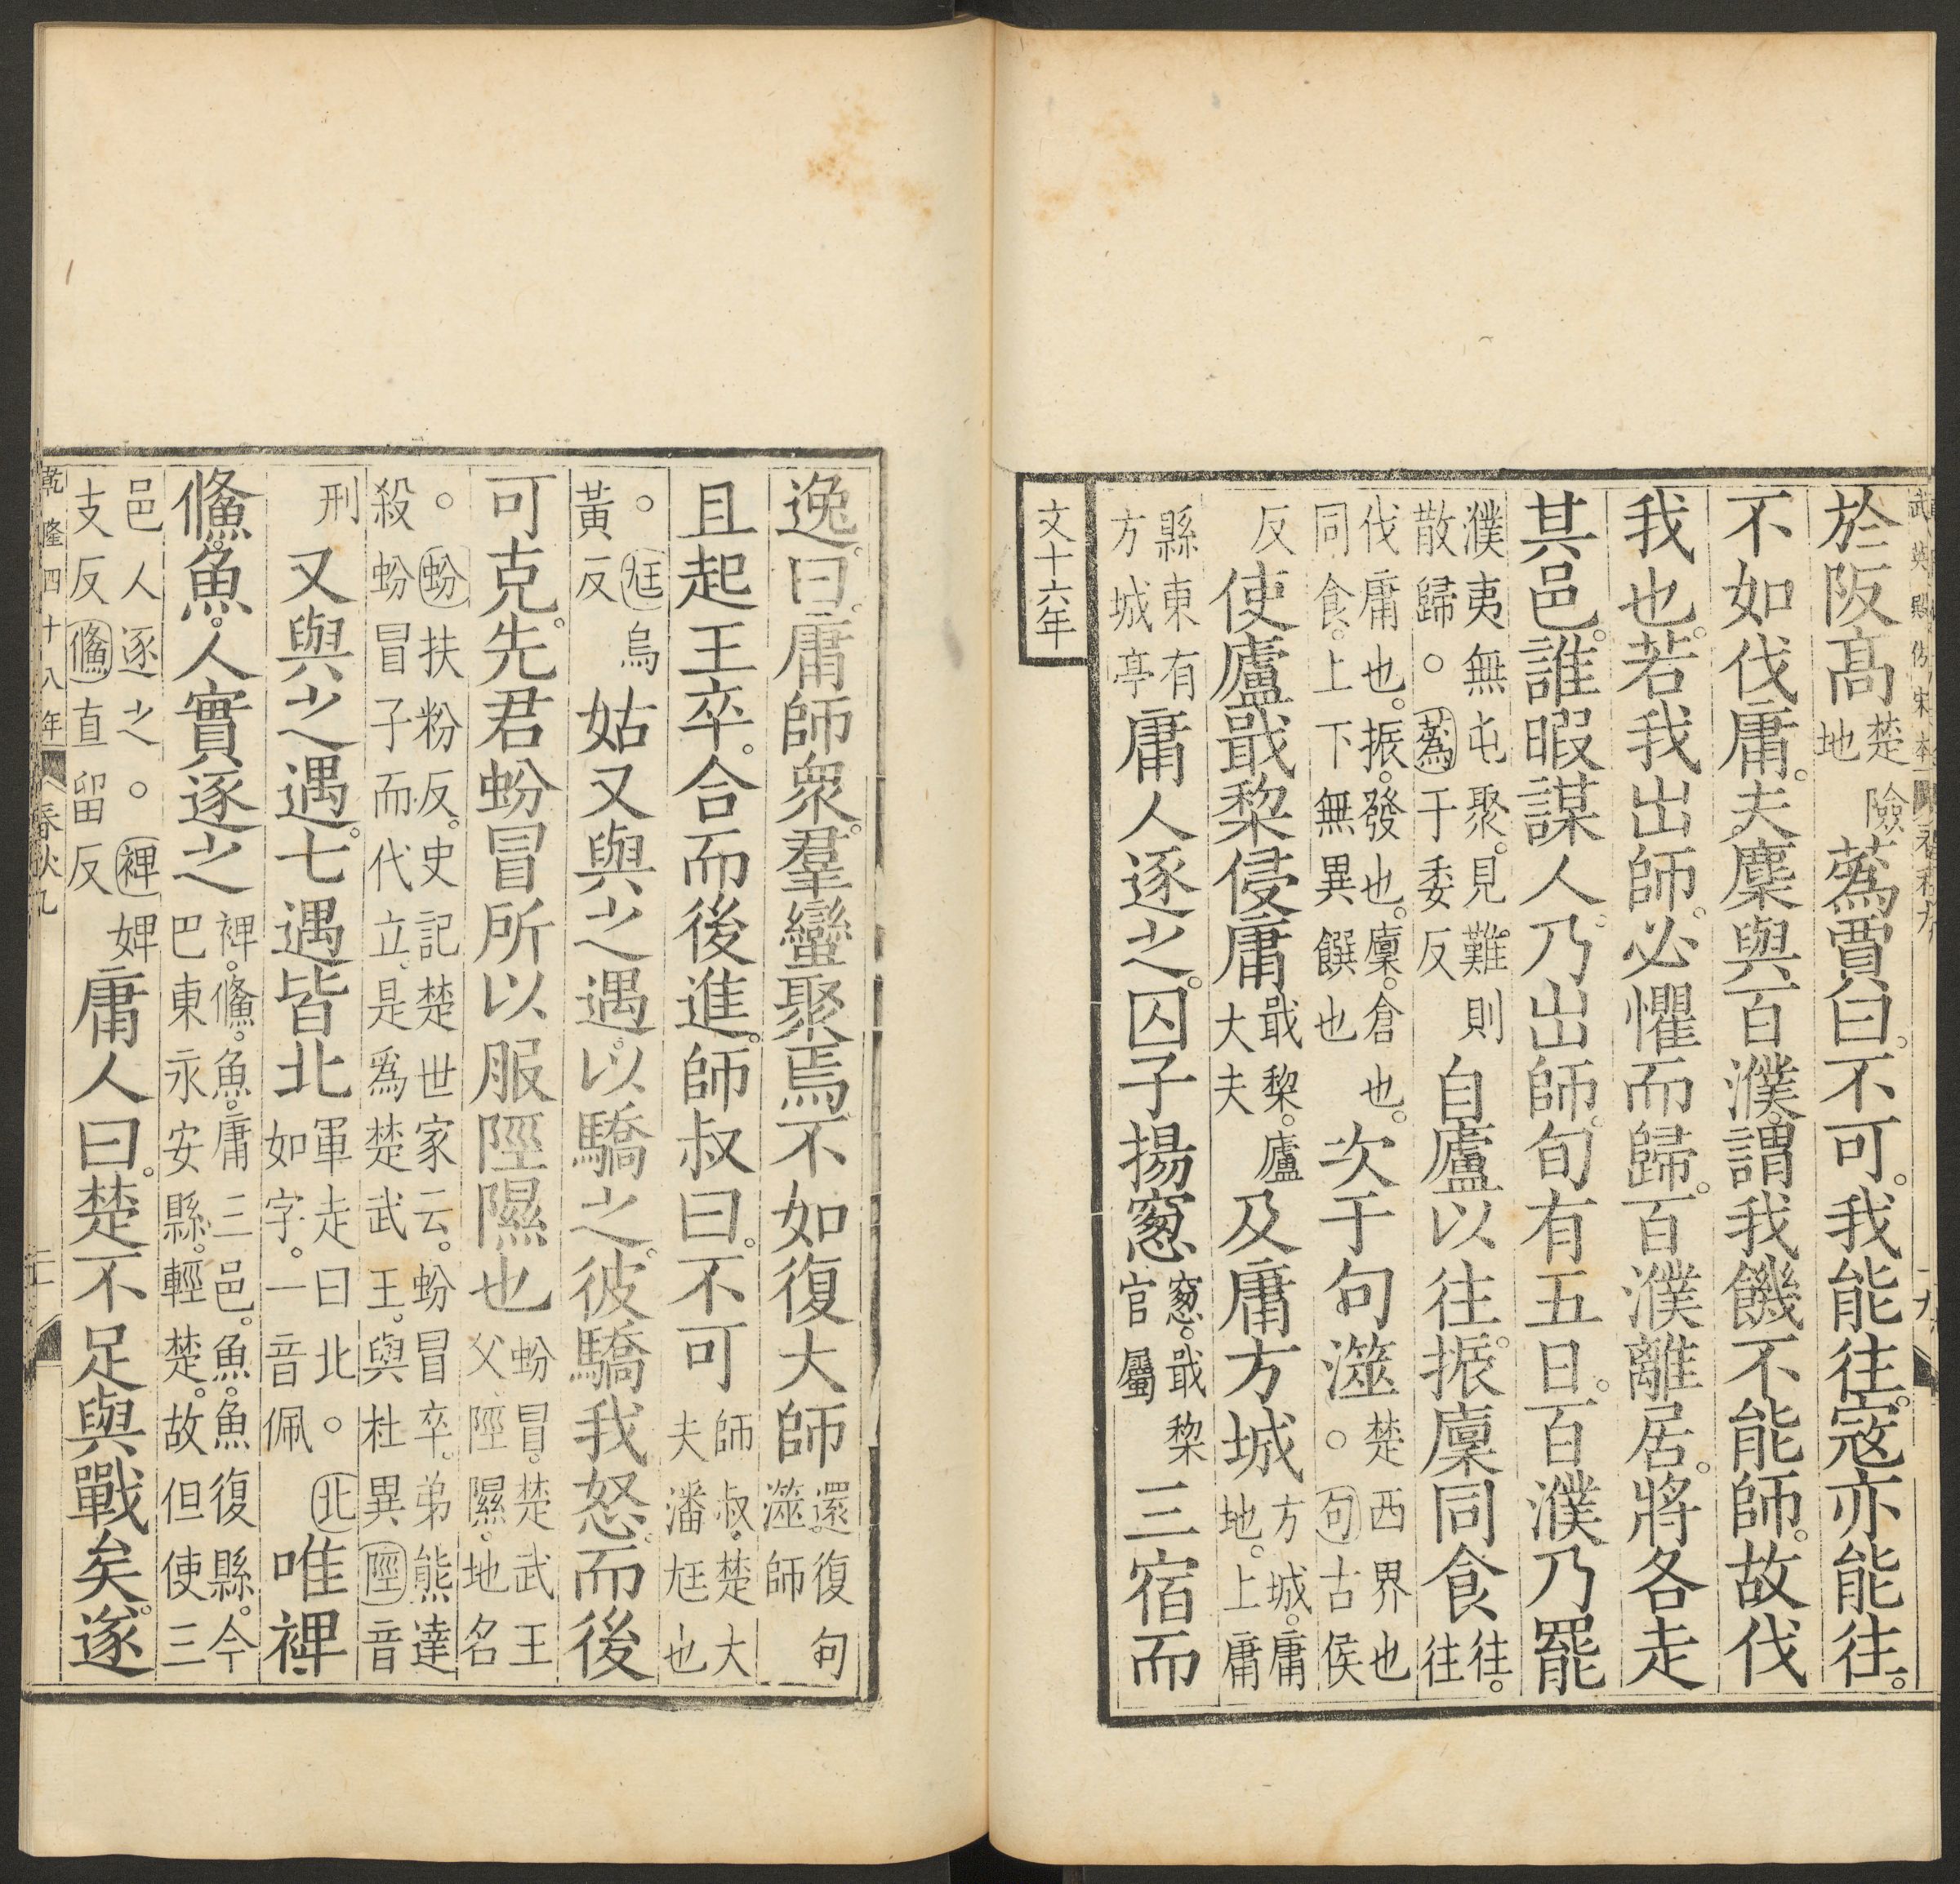 武英殿仿宋本 春秋九
於阪高楚險地蒍賈曰。不可。我能往。寇亦能往。
不如伐庸。夫麇與百濮。謂我饑不能師。故伐
我也。若我出師。必懼而歸。百濮離居。將各走
其邑。誰暇謀人。乃出師。旬有五日。百濮乃罷
濮夷無屯聚。見難則散歸。○蒍于委反自廬以往。振廩同食往。往
伐庸也。振。發也。廩。倉也。同食。上下無異饌也次于句澨楚西界也○句古侯
反使廬戢棃侵庸戢棃。廬大夫及庸方城方城。庸地。上庸
縣東有方城亭庸人逐之。囚子揚窻窻。戢棃官屬三宿而
文十六年
逸。曰。庸師衆。羣蠻聚焉。不如復大師還復句澨師
且起王卒。合而後進。師叔曰。不可師叔。楚大夫潘尫也
○尫烏黃反姑又與之遇。以驕之。彼驕我怒。而後
可克。先君蚡冒所以服陘隰也蚡冒。楚武王父。陘隰。地名
○蚡扶粉反。史記楚世家云。蚡冒卒。弟熊達殺蚡冒子而代立。是爲楚武王。與杜異陘音
刑又與之遇。七遇皆北軍走曰北○北如字。一音佩唯裨
鯈。魚。人實逐之裨。鯈。魚。庸三邑。魚。魚復縣。今巴東永安縣。輕楚。故但使三
邑人逐之○裨婢支反鯈直留反庸人曰。楚不足與戰矣。遂
乾隆四十八年 春秋九